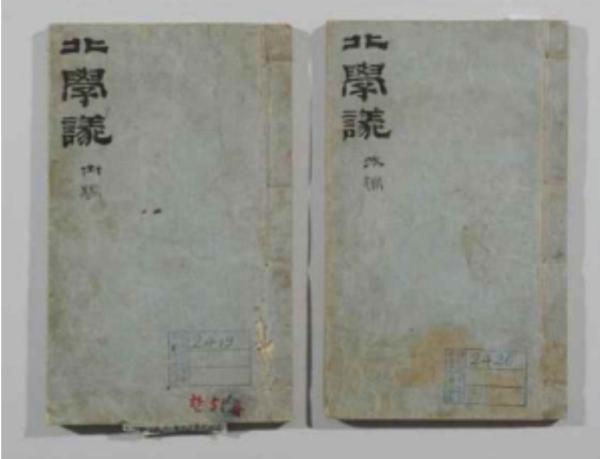 北學議
內編
2419
한51
北學議
外編
2420